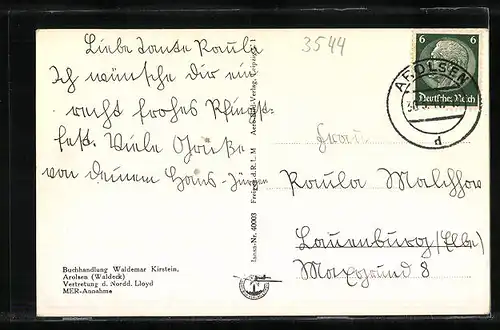 3544
Liebe Tante Paula
Ich wünsche Dir ein
recht frohes Pfingst-
fest. Viele Grüße
von Deinem Hans-Jürgen
Frau
Paula Malchow
Lauenburg/Elbe)
6 6
Deutsches Reich
AROLSEN
30
d
Iasas-Nr. 40003 Freigeg. d. R. L. M
Buchhandlung Waldemar Kirstein,
Arolsen (Waldeck)
Vertretung d. Nordd. Lloyd
MER-Annahme